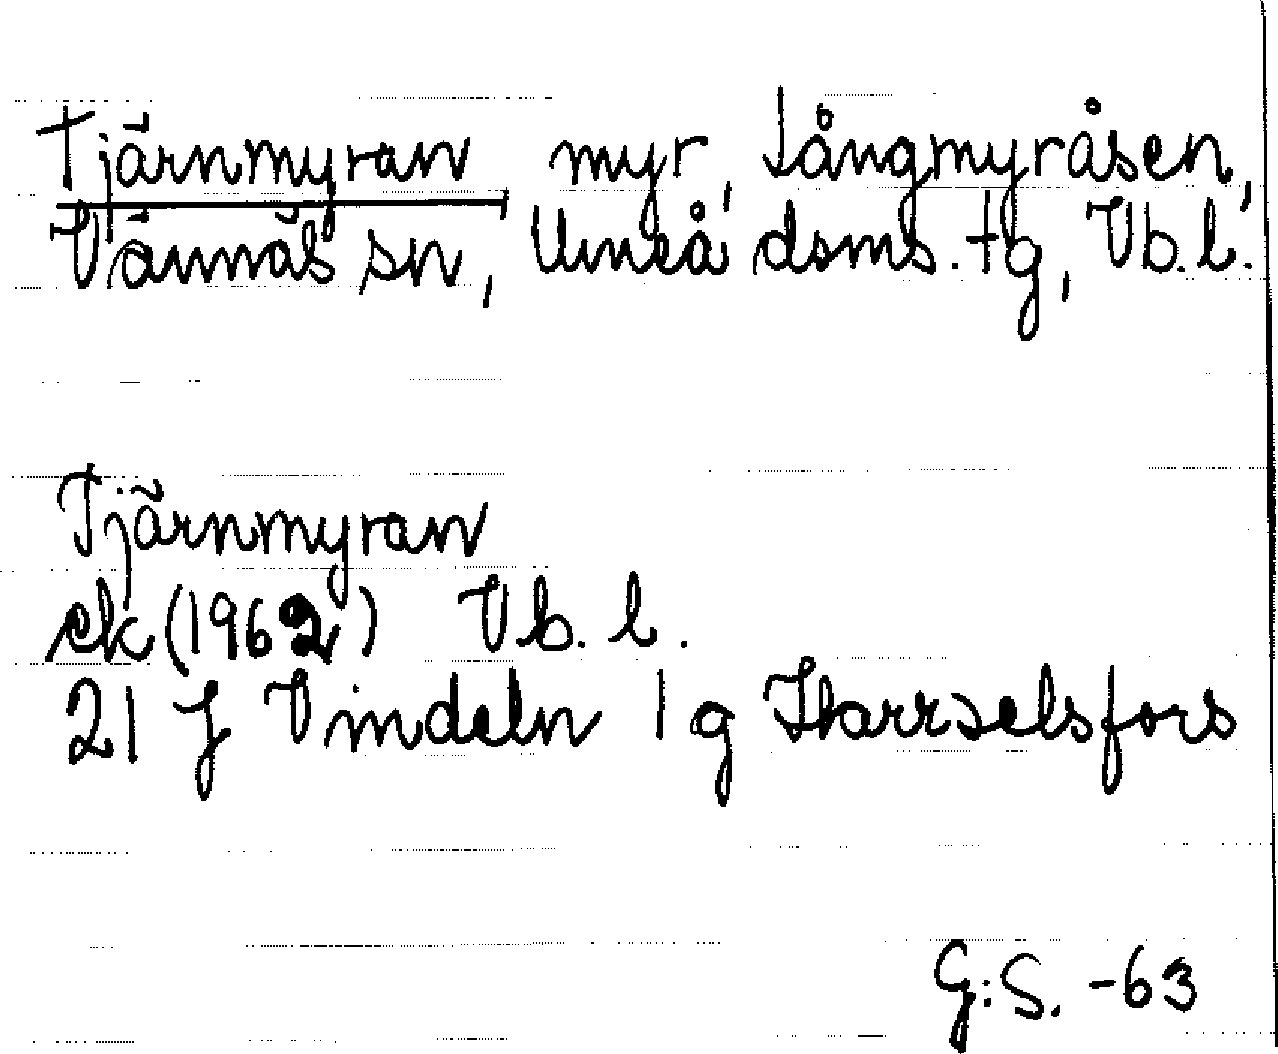 Tjärnmyran myr, Långmyråsen,
Vännäs sn, Umeå doms. tg, Vb. l.
Tjärnmyran
ek (1962) Vb. l.
21 J Vindeln 1 g Harrselsfors
G:S. -63